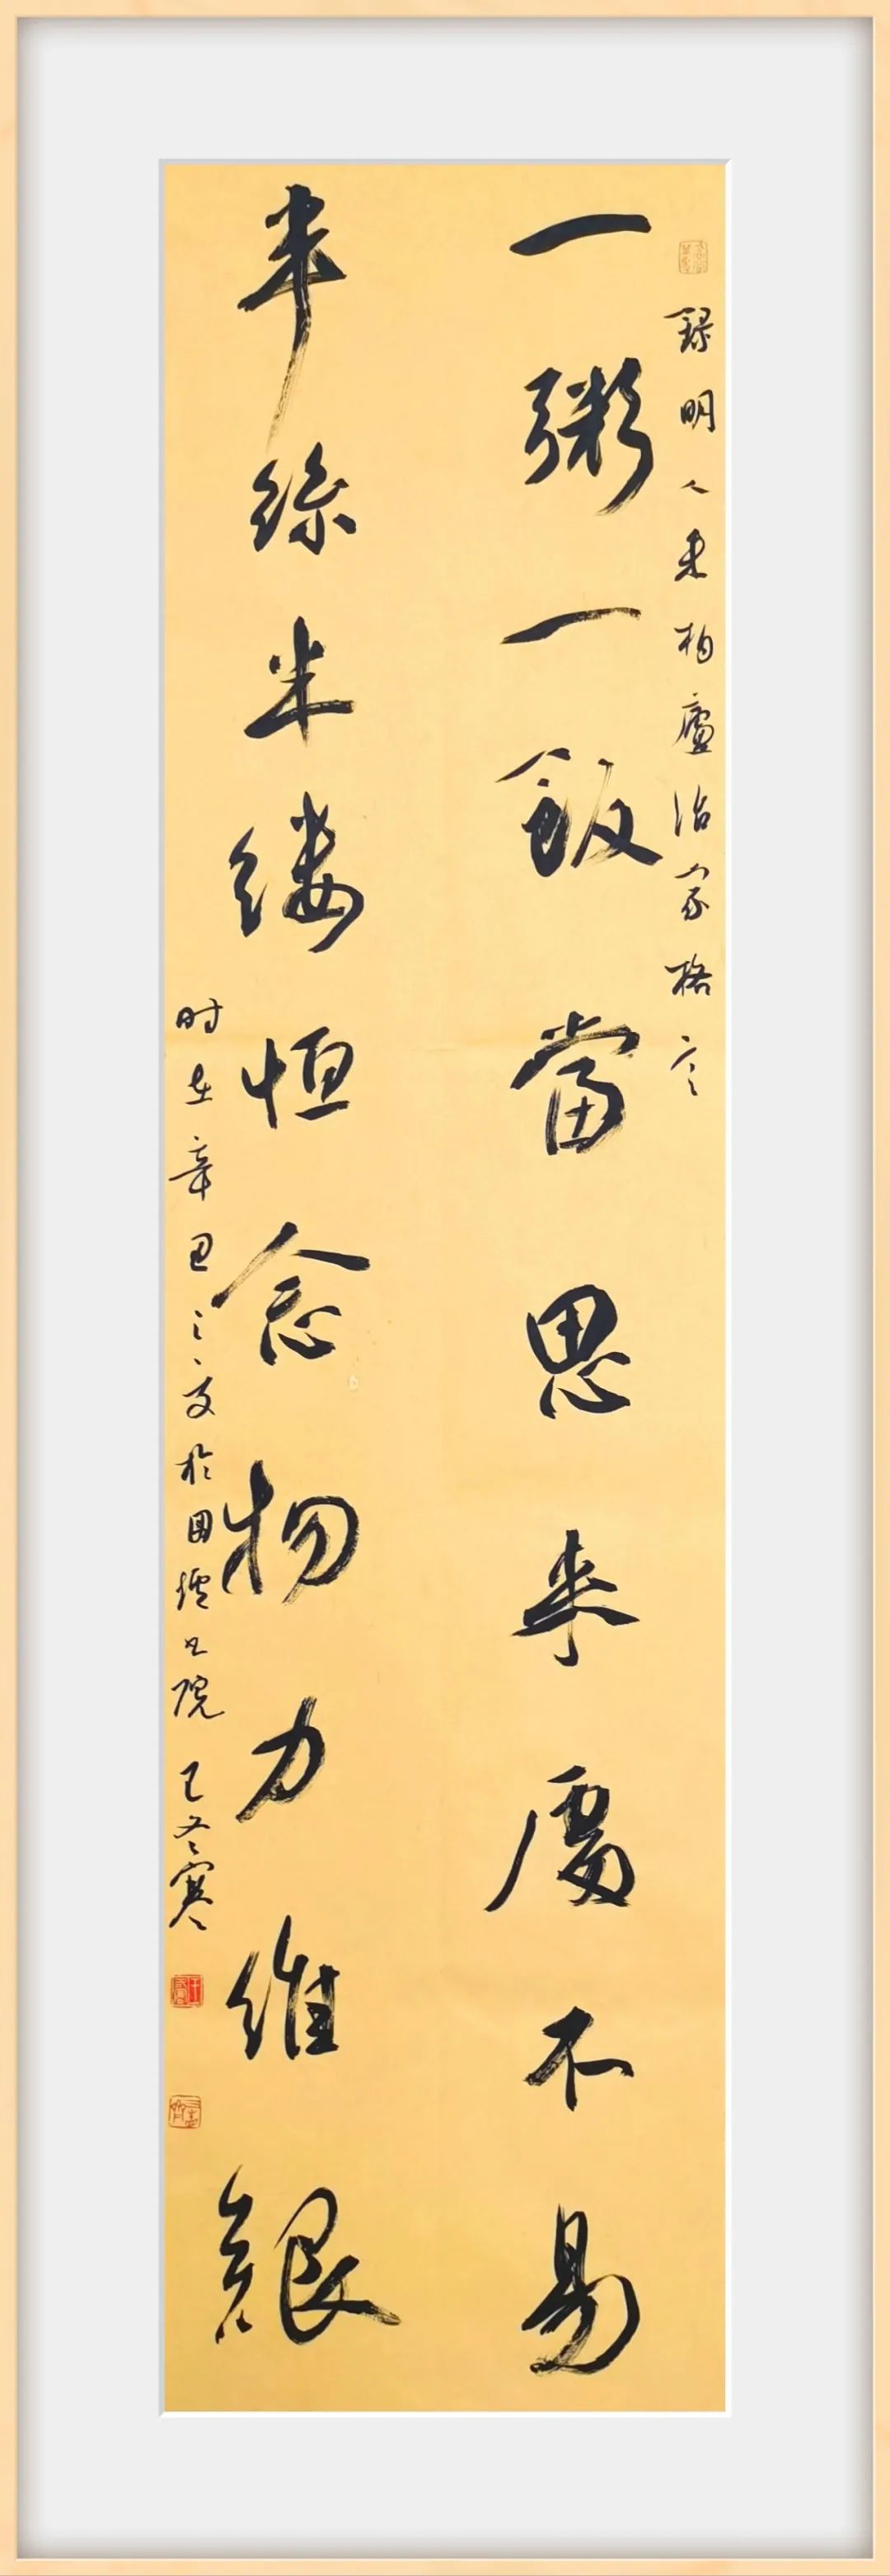 錄明人朱柏廬治家格言
一粥一飯當思来處不易
半絲半縷恒念物力維艱
时在辛丑之夏於围炉书院 冬寒